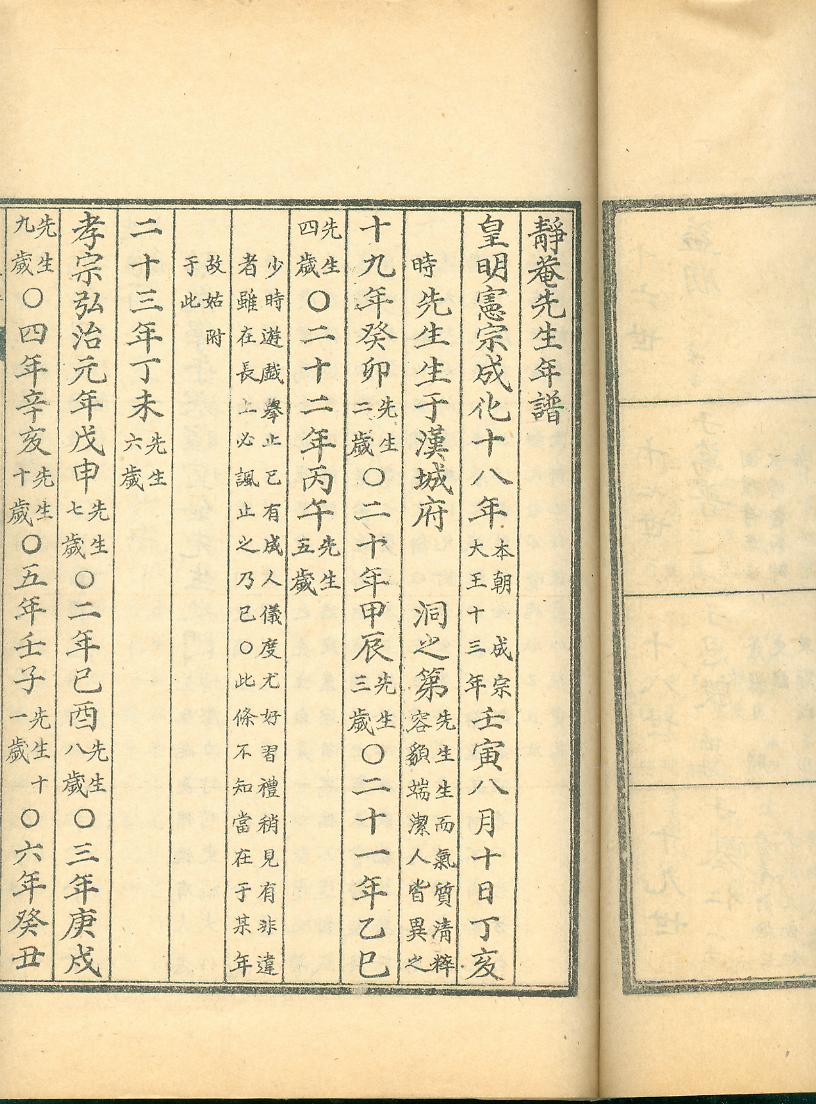 靜菴先生年譜
皇明憲宗成化十八年本朝 成宗大王十三年壬寅八月十日丁亥
時 先生生于漢城府 洞之第先生生而氣質清粹容䫉端潔人皆異之
十九年癸卯先生二歲〇二十年甲辰先生三歲〇二十一年乙巳
先生四歲〇二十二年丙午先生五歲
少時遊戲擧止已有成人儀度尤好習禮稍見有非違
者雖在長上必諷止之乃已〇此條不知當在于某年
故姑附
于此
二十三年丁未先生六歲
孝宗弘治元年戊申先生七歲〇二年己酉先生八歲〇三年庚戌
先生九歲〇四年辛亥先生十歲〇五年壬子先生十一歲〇六年癸丑